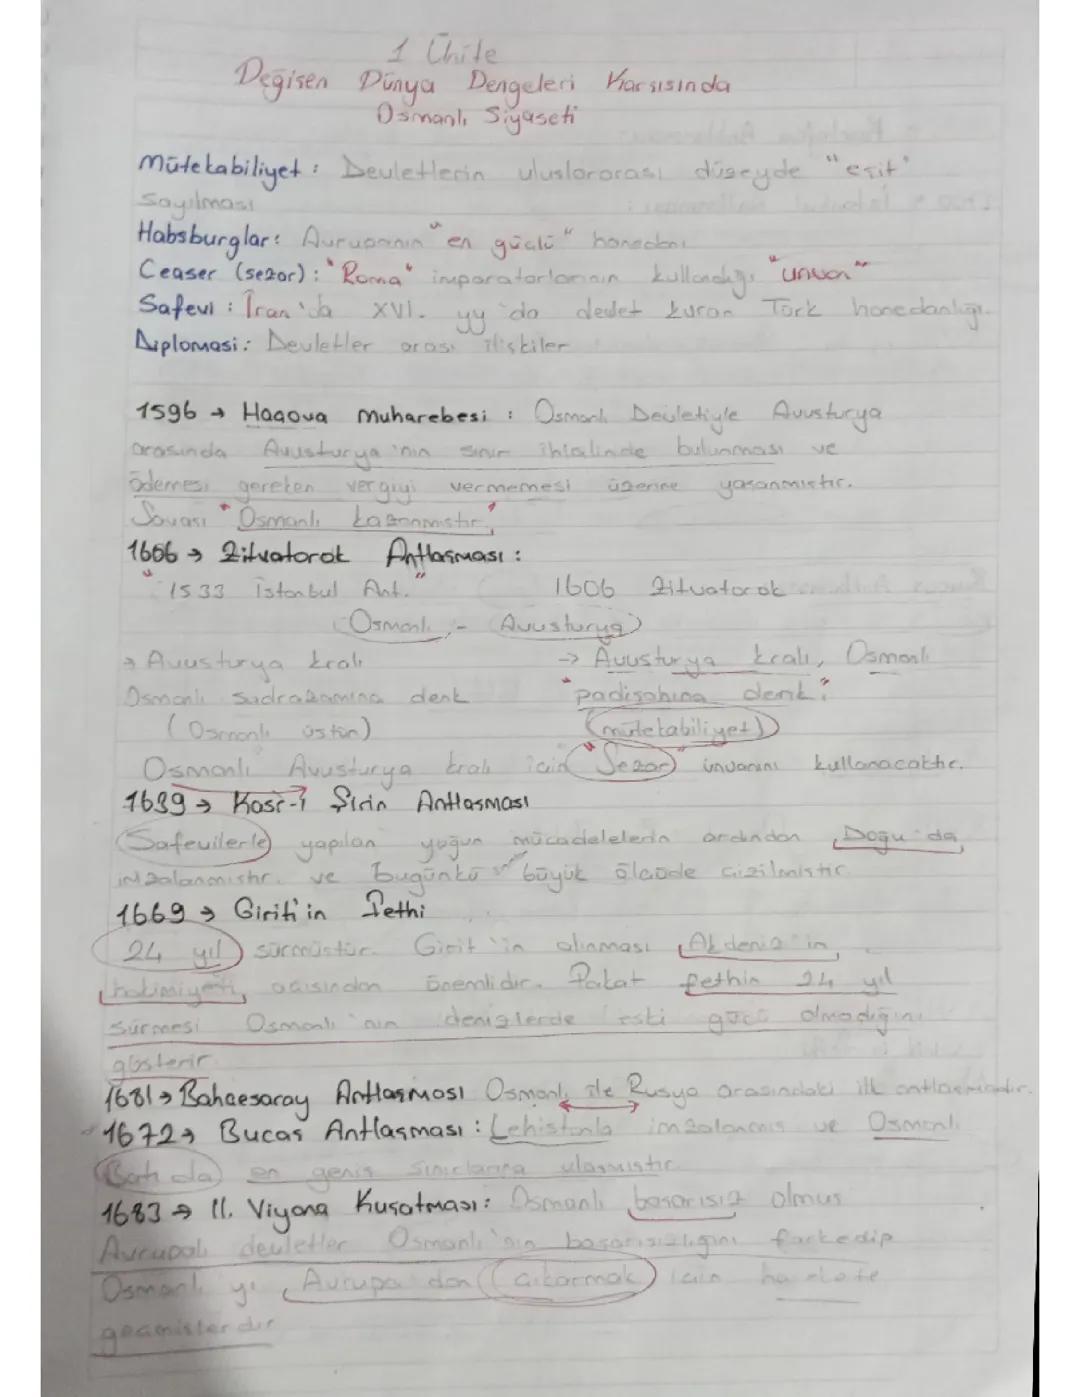 1 Ünite
Değişen Dünya Dengeleri Karşısında
Osmanlı Siyaseti
Mütekabiliyet : Devletlerin uluslararası düzeyde "eşit"
Sayılması
Habsburglar: Avrupanın "en güçlü" hanedanı
Ceaser (sezar) : "Roma" imparatorlarının kullandığı "unvan"
Safevi : İran'da XVI. yy 'da devlet kuran Türk hanedanlığı.
Diplomasi : Devletler arası ilişkiler
1596 → Haçova Muharebesi : Osmanlı Devletiyle Avusturya
arasında Avusturya 'nın sınır ihlalinde bulunması ve
ödemesi gereken vergiyi vermemesi üzerine yaşanmıştır.
Savaşı "Osmanlı kazanmıştır"
1606 → Zitvatorok Antlaşması :
"1533 İstanbul Ant." 1606 Zitvatorok
Osmanlı - Avusturya
→ Avusturya kralı → Avusturya kralı, Osmanlı
Osmanlı sadrazamına denk "padişahına denk"
(Osmanlı üstün) (mütekabiliyet)
Osmanlı Avusturya kralı için "Sezar" ünvanını kullanacaktır.
1639 → Kasr-ı Şirin Antlaşması
Safevilerle yapılan yoğun mücadelelerin ardından Doğu'da
imzalanmıştır. ve bugünkü sınır büyük ölçüde çizilmiştir.
1669 → Girit'in Fethi
24 yıl sürmüştür. Girit 'in alınması Akdeniz'in
hakimiyeti açısından önemlidir. Fakat fethin 24 yıl
sürmesi Osmanlı'nın denizlerde eski gücü olmadığını
gösterir.
1681 → Bahçesaray Antlaşması Osmanlı ile Rusya arasındaki ilk antlaşmadır.
1672 → Bucaş Antlaşması : Lehistanla imzalanmış ve Osmanlı
Batı da en geniş sınırlarına ulaşmıştır.
1683 → II. Viyana Kuşatması : Osmanlı başarısız olmuş
Avrupalı devletler Osmanlı'nın başarısızlığını farkedip
Osmanlı yı Avrupa'dan çıkarmak için harekete
geçmişlerdir